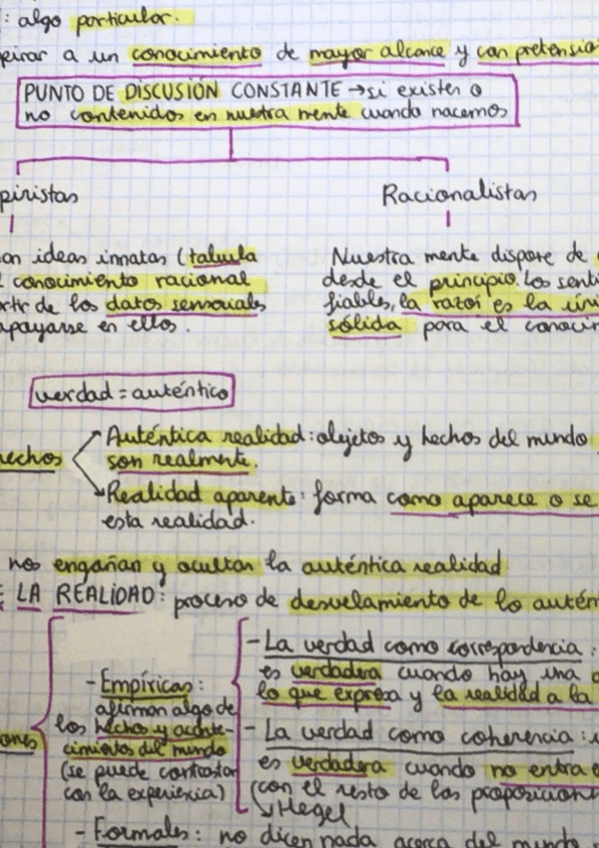 : algo particular.
pirar a un conocimiento de mayor alcance y con pretensio
PUNTO DE DISCUSIÓN CONSTANTE → si existen o
no contenidos en nuestra mente cuando nacemos
piristas
Racionalistas
on ideas innatas (tabula
conocimiento racional
rtir de los datos sensoriales
apoyarse en ellos.
Nuestra mente dispone de
desde el principio. Los senti
fiables, la razón es la úni
sólida para el conocim
verdad = auténtico
echos
Auténtica realidad: objetos y hechos del mundo
son realmente.
Realidad aparente: forma como aparece o se
esta realidad.
nos engañan y ocultan la auténtica realidad
E LA REALIDAD: proceso de desvelamiento de lo autén
ones
- Empíricas:
afirman algo de
los hechos y aconte-
cimientos del mundo
(se puede contrastar
con la experiencia)
- La verdad como correspondencia:
es verdadera cuando hay una
lo que expresa y la realidad a la
- La verdad como coherencia:
es verdadera cuando no entra
(con el resto de las proposicion
↳ Hegel
- Formales: no dicen nada acerca del mundo